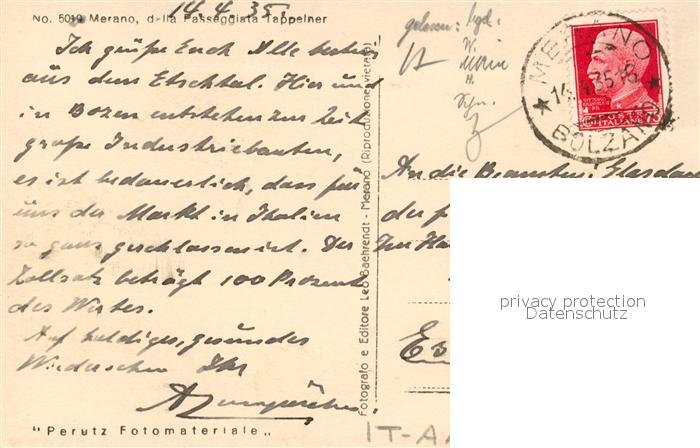 No. 5019 Merano, dalla Passeggiata Tappeiner
14.4.35.
Ich grüße Euch Alle bestens
aus dem Etschtal. Hier und
in Bozen entstehen zur Zeit
große Industriebauten,
es ist bedauerlich, dass für
uns der Markt in Italien
so ganz geschlossen ist. Der
Zollsatz beträgt 100 Prozent
des Wertes.
Auf baldiges, gesundes
Wiedersehen Ihr
"Perutz Fotomateriale"
Fotografo e Editore Leo Baehrendt - Merano (Riproduzione vietata)
gelesen:
MERANO
14.4.35
BOLZANO
An die Beamten
der
Es
IT-A
privacy protection
Datenschutz